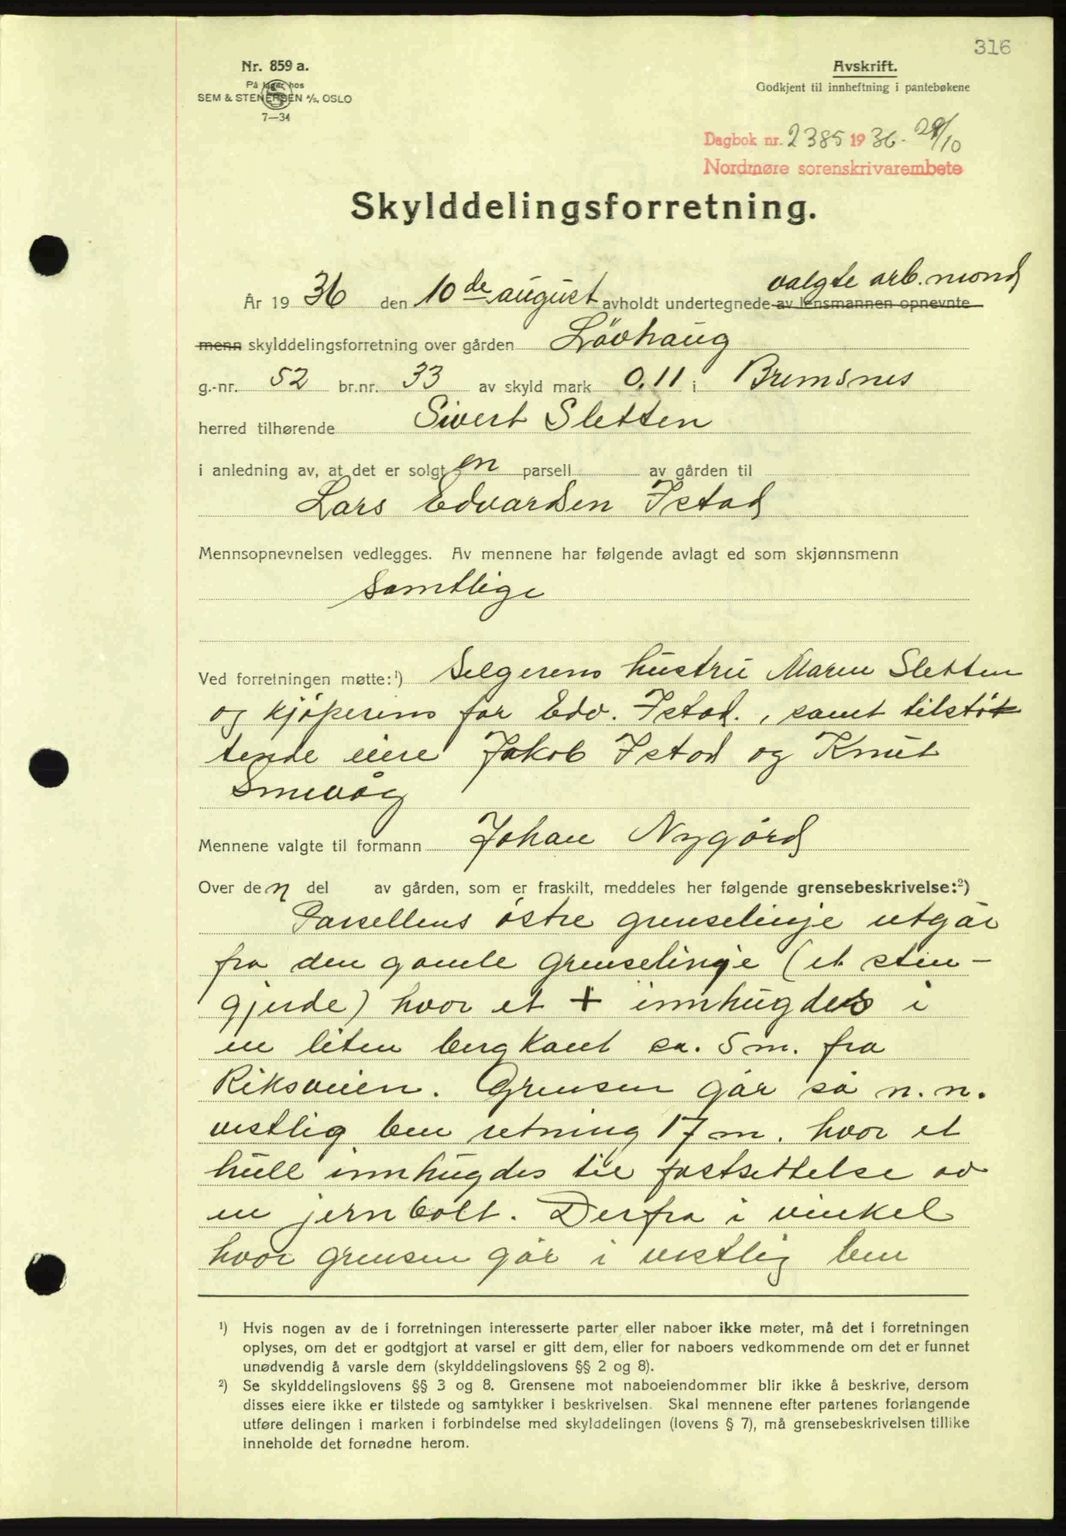 316
Nr. 859 a.
På lager hos
SEM & STENERSEN A/S, OSLO
7—34
Avskrift.
Godkjent til innheftning i pantebøkene
Dagbok nr. 2385 1936. 29/10
Nordmøre sorenskrivarembete
Skylddelingsforretning.
valgte arb. mond
År 1936 den 10de august avholdt undertegnede av lensmannen opnevnte
menn skylddelingsforretning over gården Lövhaug
g.-nr. 52 br.nr. 33 av skyld mark 0.11 i Bremsnes
herred tilhørende Sivert Sletten
i anledning av, at det er solgt en parsell av gården til
Lars Edvardsen Istad
Mennsopnevnelsen vedlegges. Av mennene har følgende avlagt ed som skjønnsmenn
Samtlige
Ved forretningen møtte:¹) Selgerens hustru Maren Sletten
og kjöperens far Edv. Istad., samt tilstöt
tende eiere Jakob Istad og Knut
Smevåg
Mennene valgte til formann Johan Nygård
Over den del av gården, som er fraskilt, meddeles her følgende grensebeskrivelse:²)
Parsellens östre grenselinje utgår
fra den gamle grenselinje (et sten-
gjerde) hvor et + innhugdes i
en liten bergkant ca. 5 m. fra
Riksveien. Grensen går så n. n.
vestlig ben retning 17 m. hvor et
hull innhugdes til fastsettelse av
en jernbolt. Derfra i vinkel
hvor grensen går i vestlig ben
¹) Hvis nogen av de i forretningen interesserte parter eller naboer ikke møter, må det i forretningen
oplyses, om det er godtgjort at varsel er gitt dem, eller for naboers vedkommende om det er funnet
unødvendig å varsle dem (skylddelingslovens §§ 2 og 8).
²) Se skylddelingslovens §§ 3 og 8. Grensene mot naboeiendommer blir ikke å beskrive, dersom
disses eiere ikke er tilstede og samtykker i beskrivelsen. Skal mennene efter partenes forlangende
utføre delingen i marken i forbindelse med skylddelingen (lovens § 7), må grensebeskrivelsen tillike
inneholde det fornødne herom.